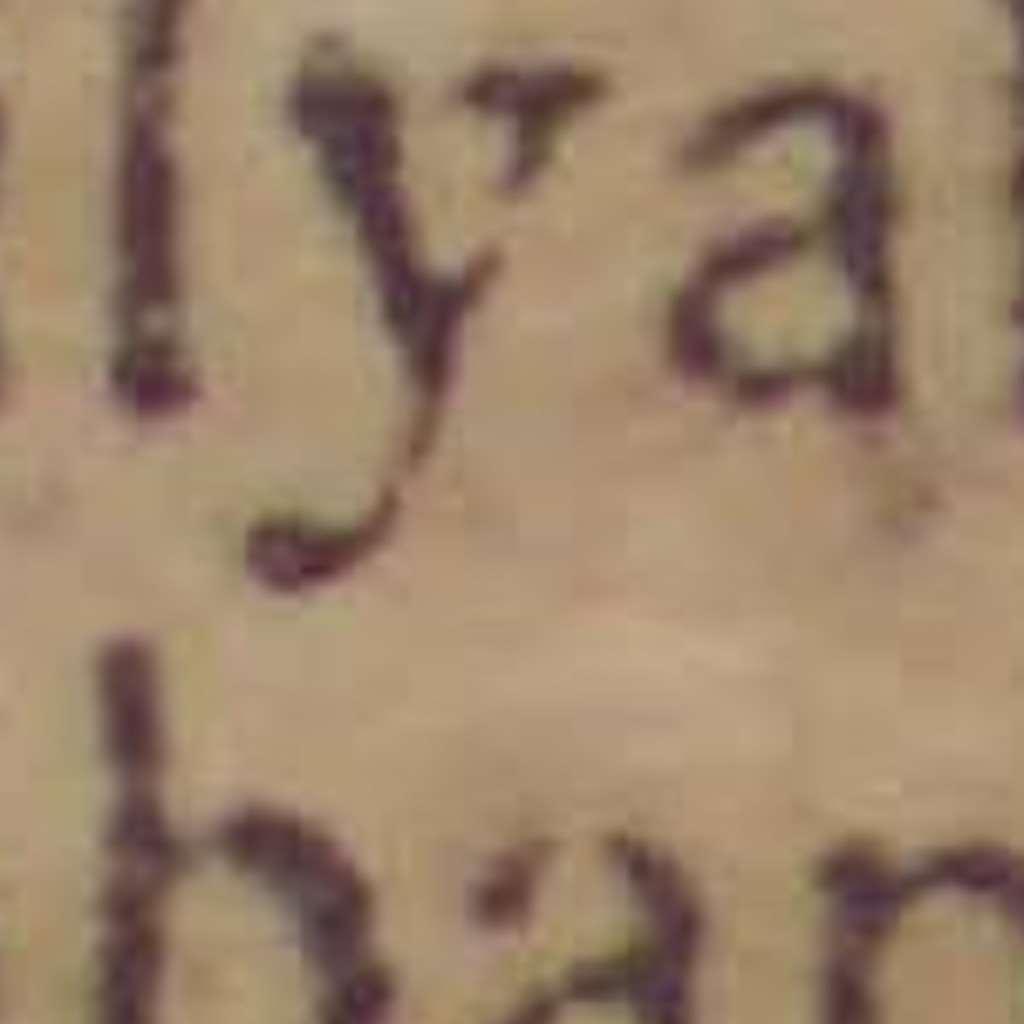 lya
han